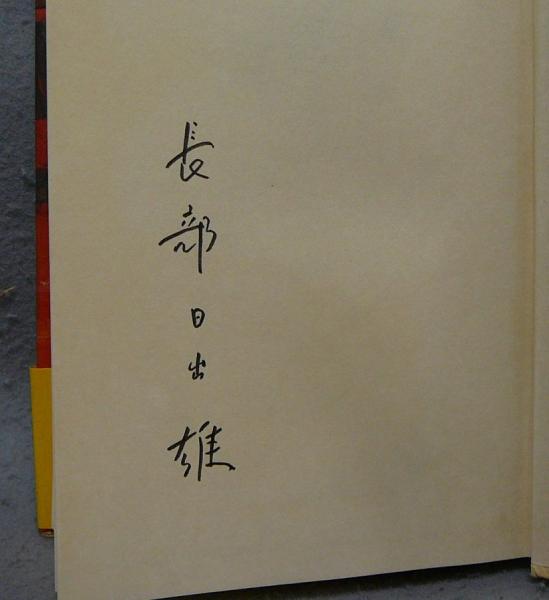 長部日出雄